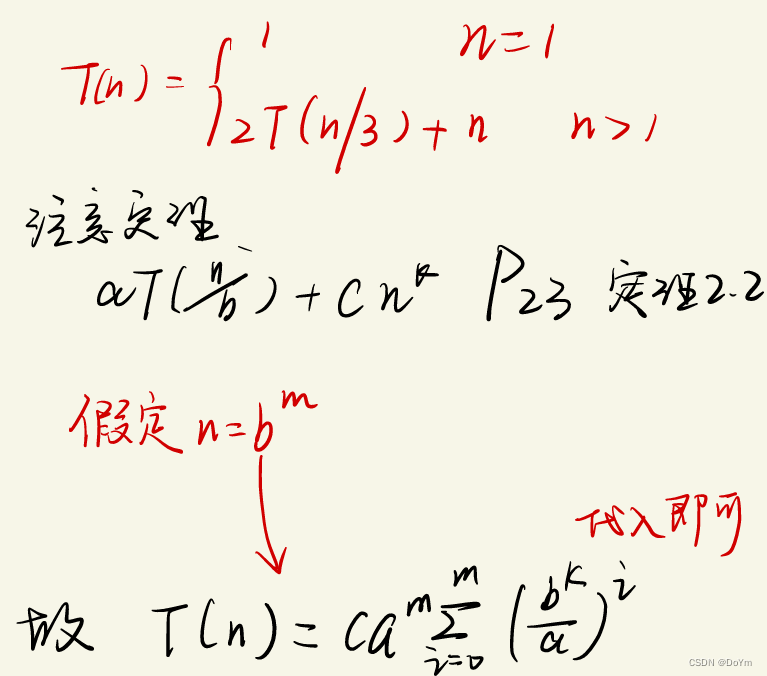 T(n) = { 1 n=1
2T(n/3)+n n>1
注意定理
aT(n/b)+cn^k P23 定理2.2
假定 n=b^m
代入即可
故 T(n) = ca^m ∑_{i=0}^{m} (b^k/a)^i
CSDN @DoYm